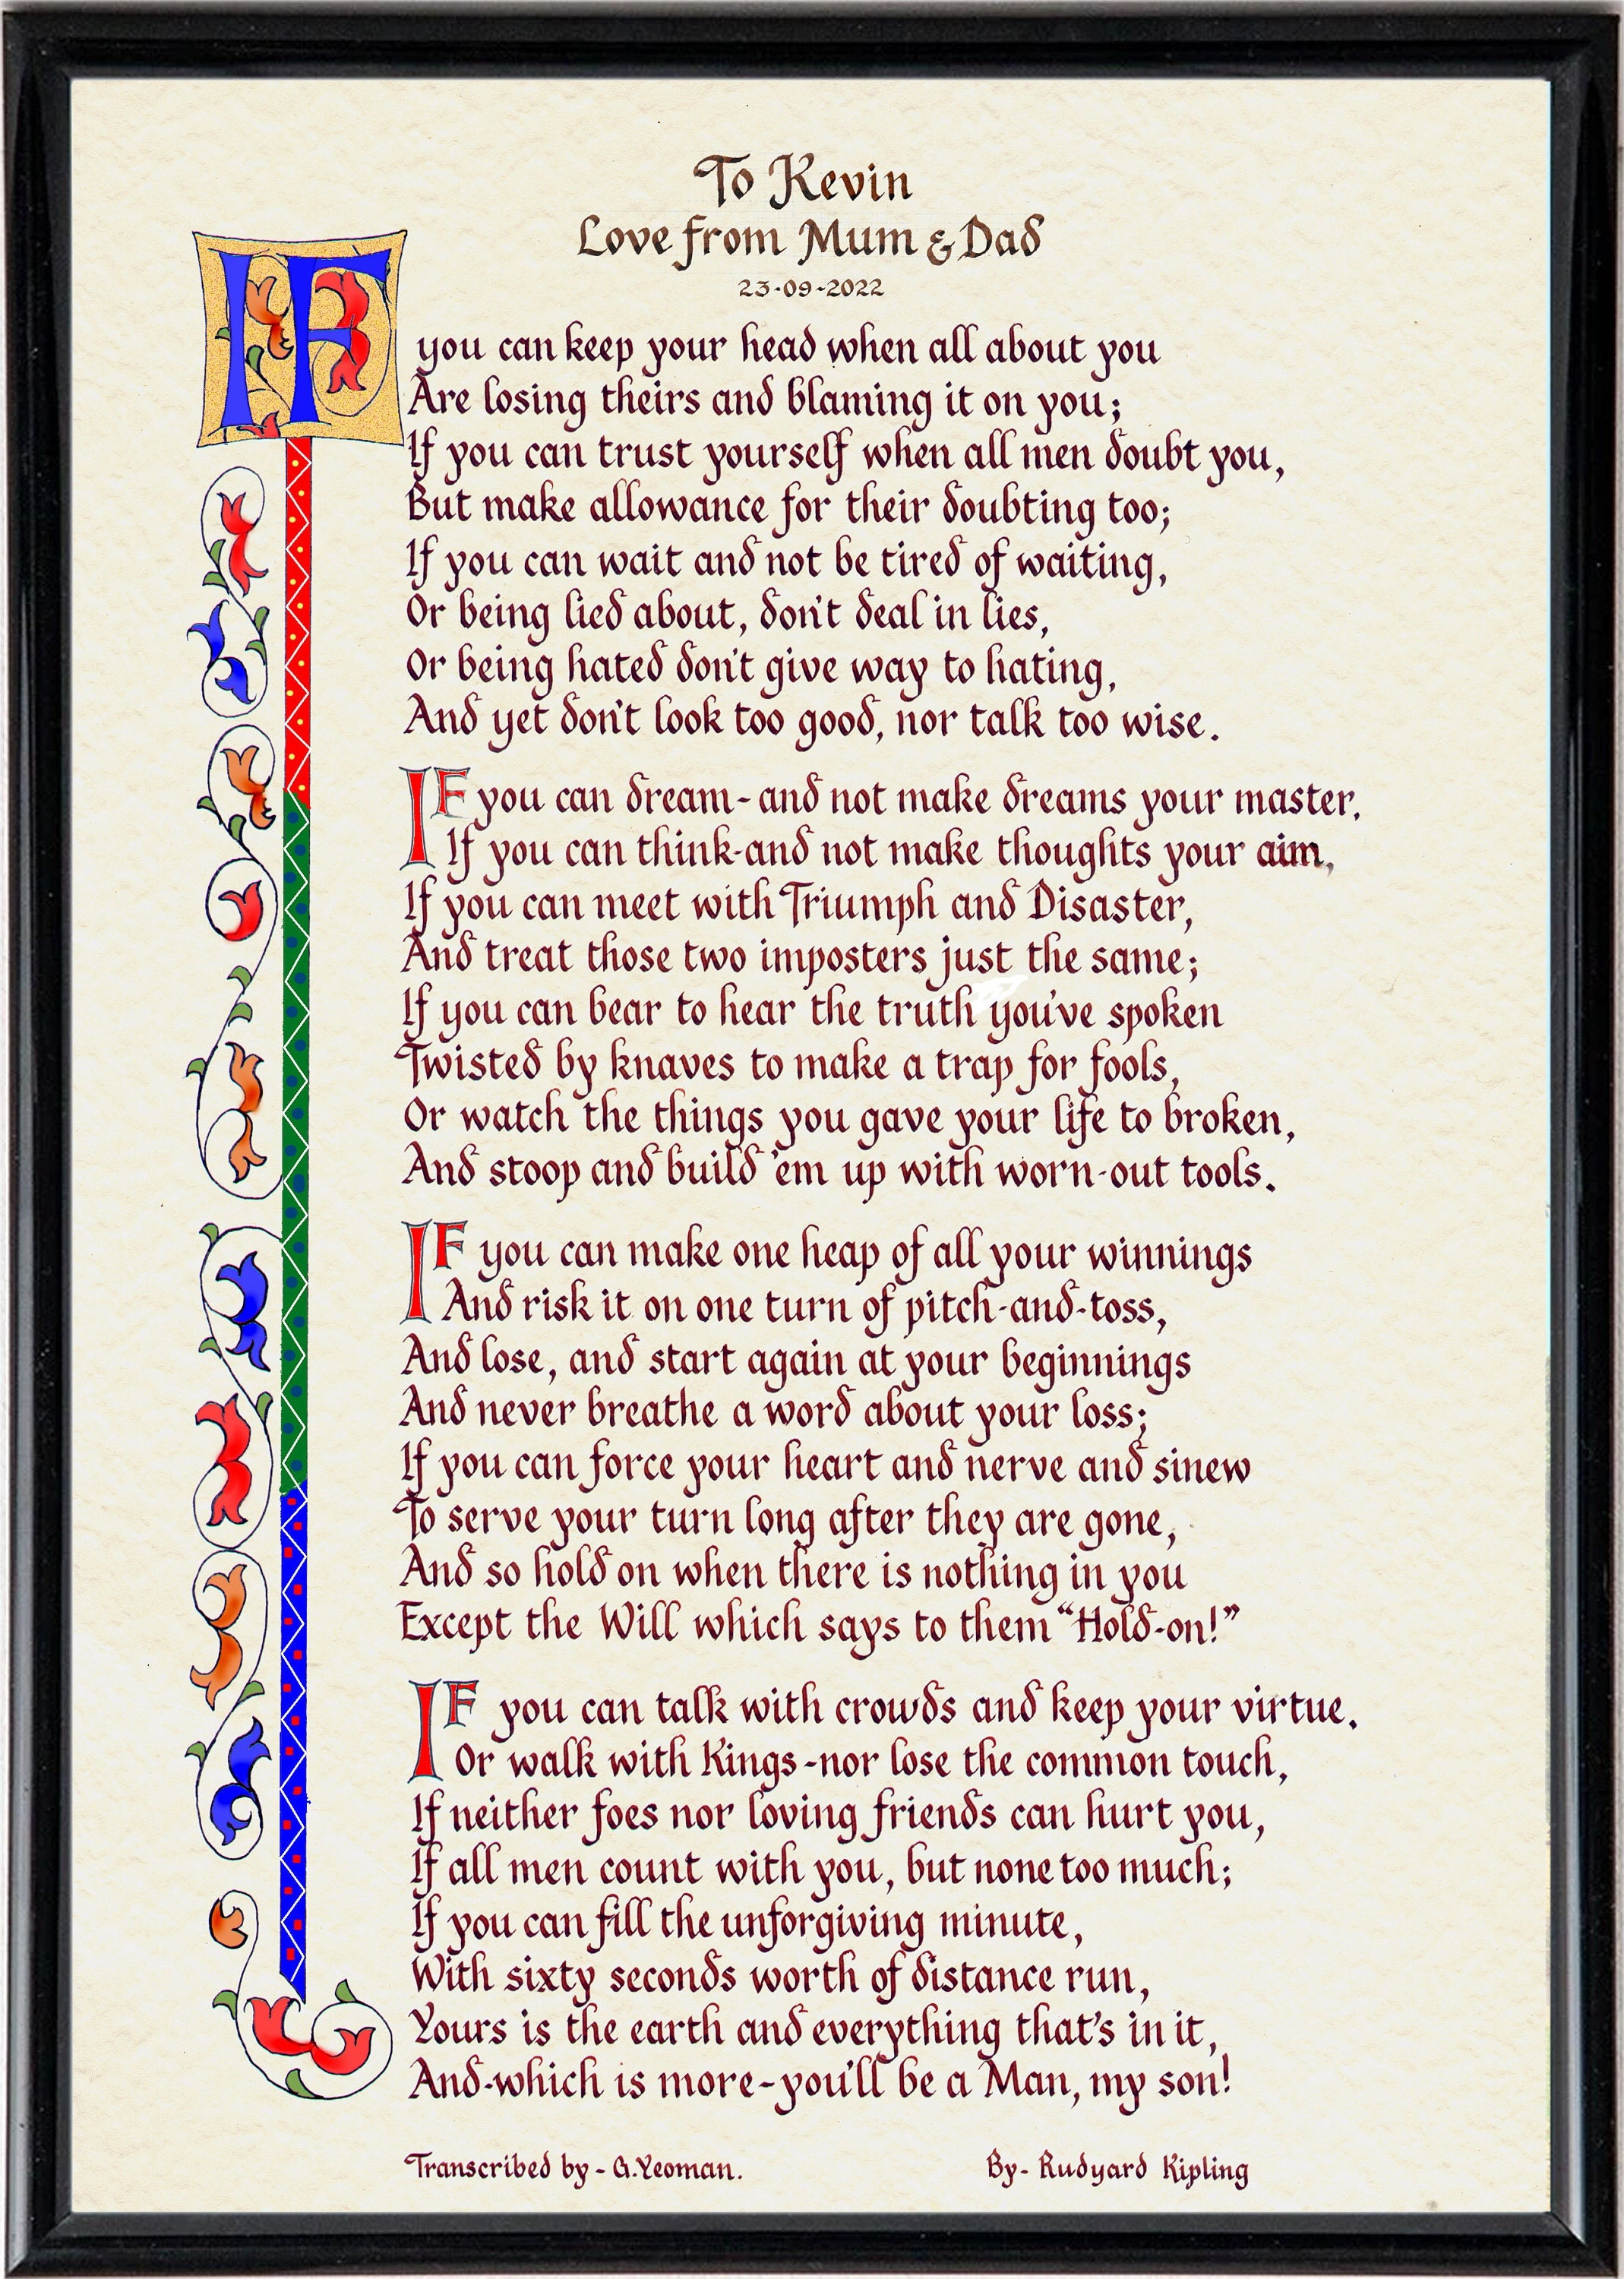 To Kevin
Love from Mum & Dad
23-09-2022
IF you can keep your head when all about you
Are losing theirs and blaming it on you;
If you can trust yourself when all men doubt you,
But make allowance for their doubting too;
If you can wait and not be tired of waiting,
Or being lied about, don't deal in lies,
Or being hated don't give way to hating,
And yet don't look too good, nor talk too wise.
IF you can dream-and not make dreams your master,
If you can think-and not make thoughts your aim,
If you can meet with Triumph and Disaster,
And treat those two imposters just the same;
If you can bear to hear the truth you've spoken
Twisted by knaves to make a trap for fools,
Or watch the things you gave your life to broken,
And stoop and build 'em up with worn-out tools.
IF you can make one heap of all your winnings
And risk it on one turn of pitch-and-toss,
And lose, and start again at your beginnings
And never breathe a word about your loss;
If you can force your heart and nerve and sinew
To serve your turn long after they are gone,
And so hold on when there is nothing in you
Except the Will which says to them “Hold-on!”
IF you can talk with crowds and keep your virtue.
Or walk with Kings-nor lose the common touch,
If neither foes nor loving friends can hurt you,
If all men count with you, but none too much;
If you can fill the unforgiving minute,
With sixty seconds worth of distance run,
Yours is the earth and everything that's in it,
And-which is more-you'll be a Man, my son!
Transcribed by - G.Yeoman.
By- Rudyard Kipling